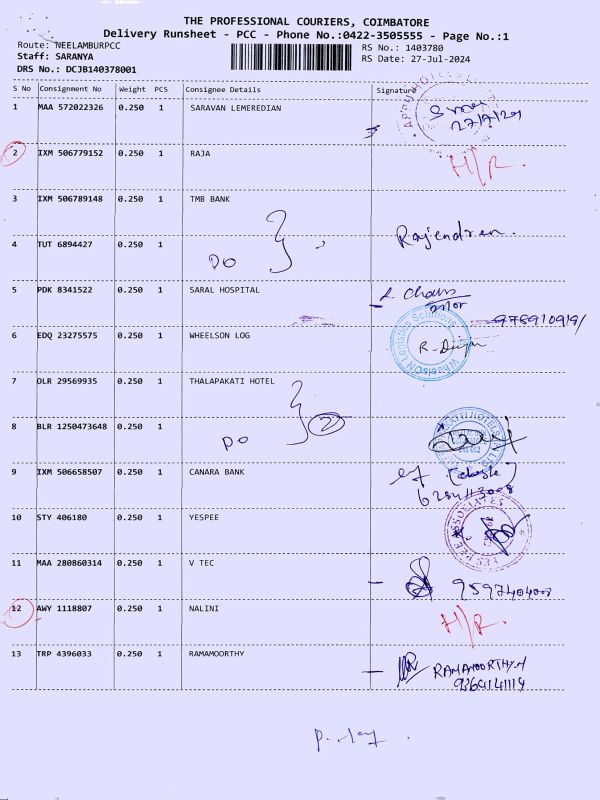 THE PROFESSIONAL COURIERS, COIMBATORE
Delivery Runsheet - PCC - Phone No.:0422-3505555 - Page No.:1
Route: NEELAMBURPCC RS No.: 1403780
Staff: SARANYA RS Date: 27-Jul-2024
DRS No.: DCJB140378001
S No Consignment No Weight PCS Consignee Details Signature
1 MAA 572022326 0.250 1 SARAVAN LEMEREDIAN
27/7/24
2 IXM 506779152 0.250 1 RAJA H/R.
3 IXM 506789148 0.250 1 TMB BANK
Rajendren.
4 TUT 6894427 0.250 1
DO
5 PDK 8341522 0.250 1 SARAL HOSPITAL
6 EDQ 23275575 0.250 1 WHEELSON LOG WheelsON Logistics Solutions
7 OLR 29569935 0.250 1 THALAPAKATI HOTEL
2
8 BLR 1250473648 0.250 1
DO
9 IXM 506658507 0.250 1 CANARA BANK
10 STY 406180 0.250 1 YESPEE YES PEE ASSOCIATES
11 MAA 280860314 0.250 1 V TEC
9597404008
12 AWY 1118807 0.250 1 NALINI H/R.
13 TRP 4396033 0.250 1 RAMAMOORTHY RAMAMOORTHY.M
9364141114